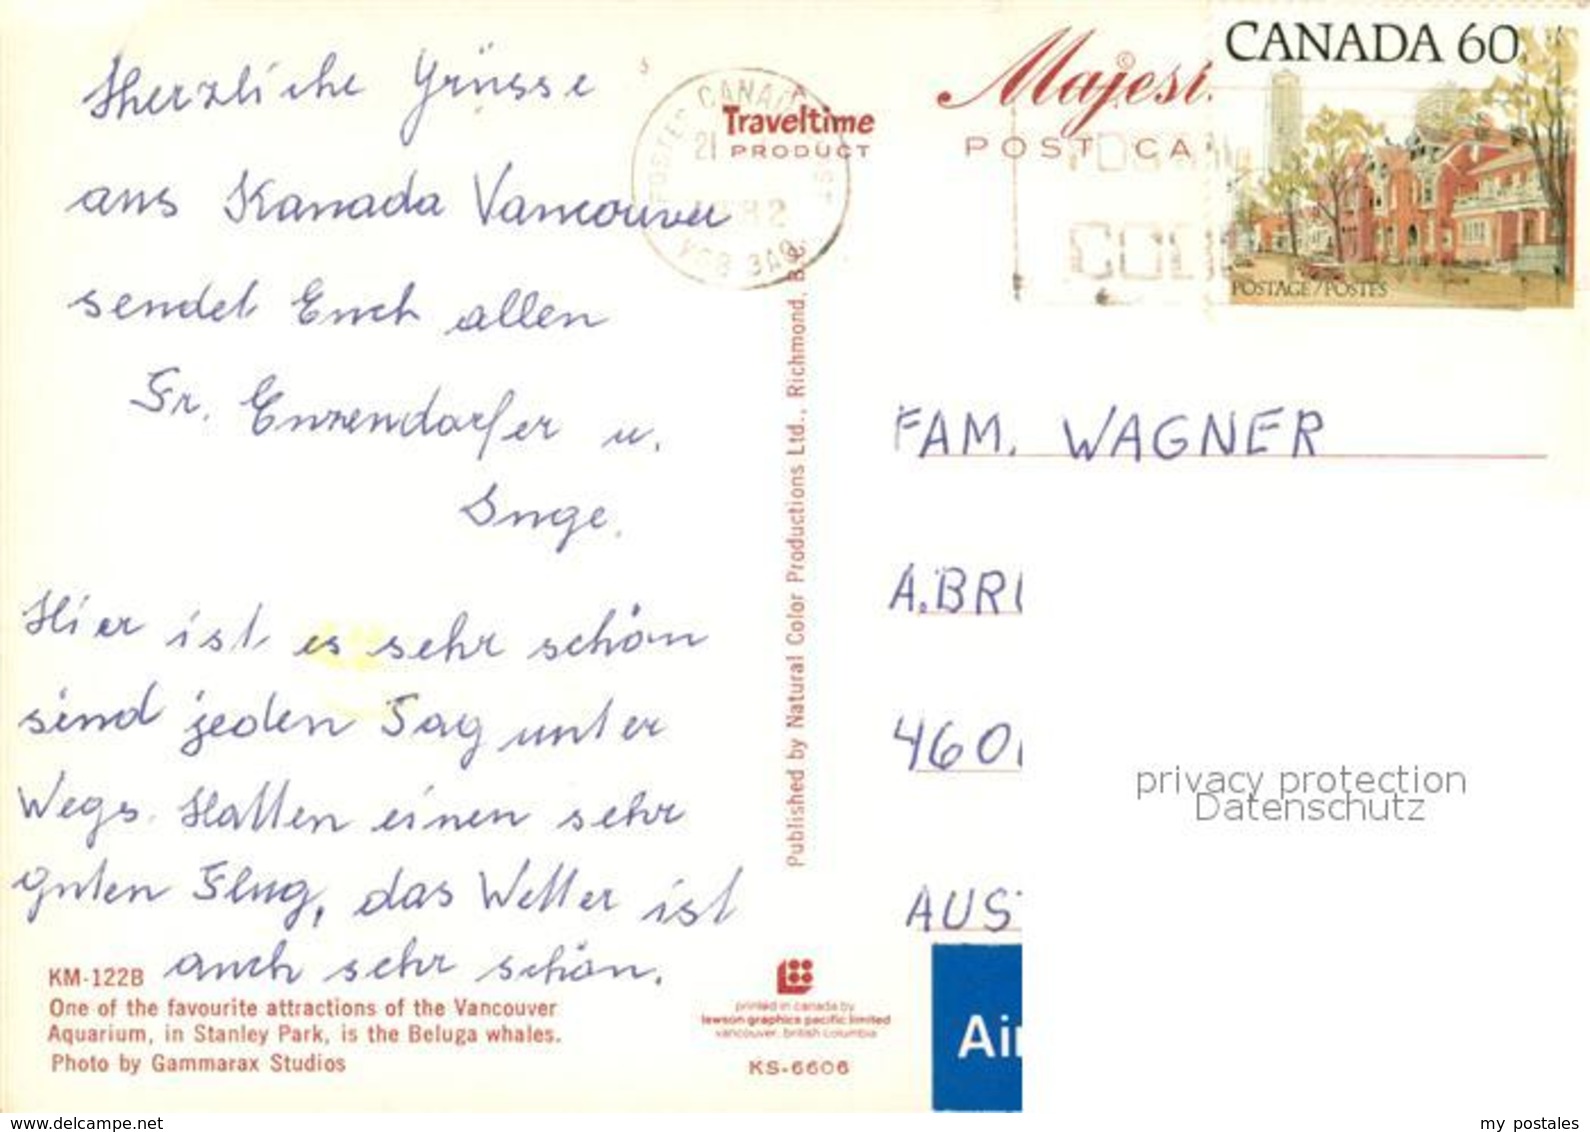 Herzliche Grüsse
aus Kanada Vancouver
sendet Euch allen
Fr. Enzendorfer u.
Inge.
Hier ist es sehr schön
sind jeden Tag unter
Wegs. Hatten einen sehr
guten Flug, das Wetter ist
auch sehr schön.
KM-122B
One of the favourite attractions of the Vancouver
Aquarium, in Stanley Park, is the Beluga whales.
Photo by Gammarax Studios
POSTES CANADA
21
82
V6B 3A0
Traveltime
PRODUCT
Published by Natural Color Productions Ltd., Richmond, B.C.
printed in canada by
lawson graphics pacific limited
vancouver, british columbia
KS-6606
Majest
POST CA
CANADA 60
POSTAGE/POSTES
FAM. WAGNER
A.BRU
460
AUST
Air
privacy protection
Datenschutz
www.delcampe.net
my postales